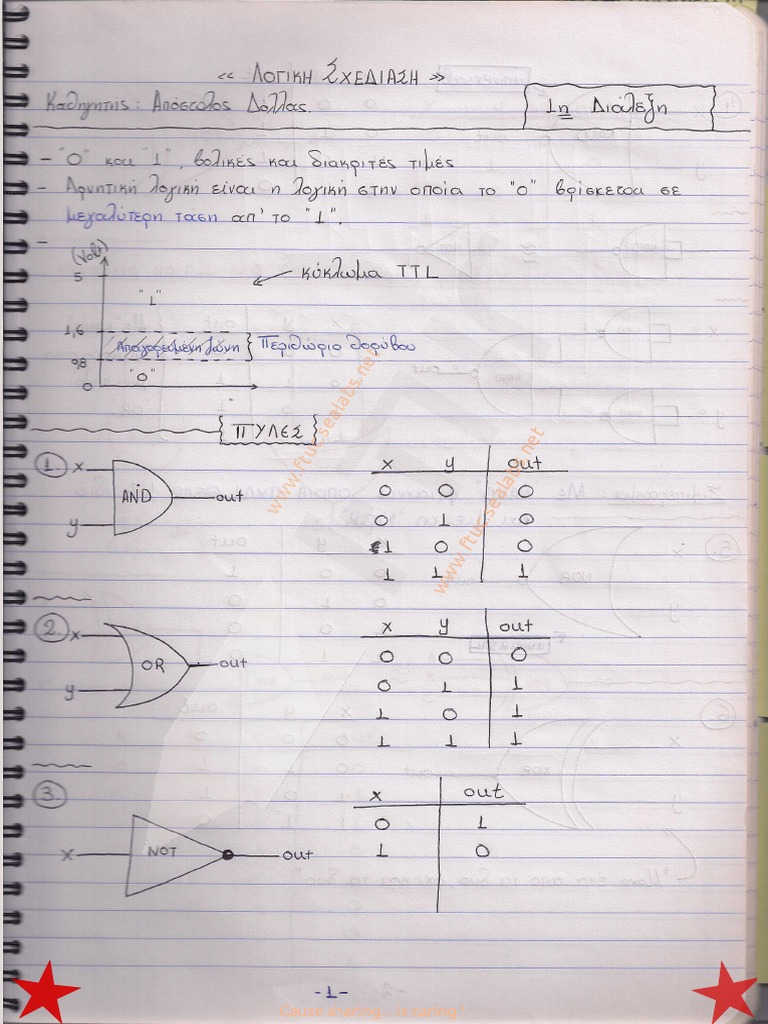 « ΛΟΓΙΚΗ ΣΧΕΔΙΑΣΗ »
Καθηγητής: Απόστολος Δόλλας.
1η Διάλεξη
- "0" και "1", βολικές και διακριτές τιμές
- Αρνητική λογική είναι η λογική στην οποία το "0" βρίσκεται σε
μεγαλύτερη τάση απ' το "1".
-
(Volt)
κύκλωμα TTL
5
"1"
1,6
Απαγορευμένη ζώνη } Περιθώριο θορύβου
0,8
"0"
0
{ΠΥΛΕΣ}
1. x AND out
y
x y out
0 0 0
0 1 0
1 0 0
1 1 1
2. x OR out
y
x y out
0 0 0
0 1 1
1 0 1
1 1 1
3.
x NOT out
x out
0 1
1 0
www.ftuc.sealabs.net
www.ftuc.sealabs.net
-1-
Cause sharing... is caring!